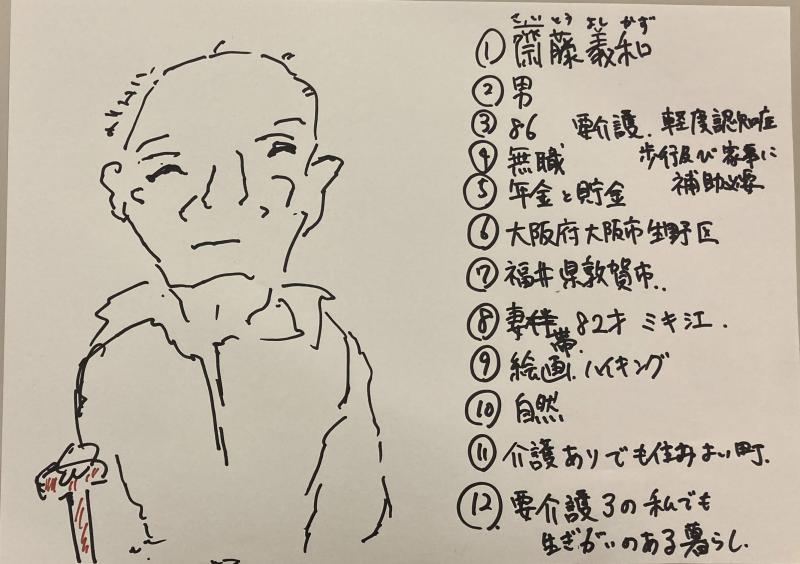 さいとう よし かず
① 齋藤義和
② 男
③ 86 要介護. 軽度認知症
歩行及び家事に
補助必要
④ 無職
⑤ 年金と貯金
⑥ 大阪府大阪市生野区
⑦ 福井県敦賀市..
⑧ 妻 82才 ミキ江.
帯.
⑨ 絵画. ハイキング
⑩ 自然
⑪ 介護ありでも住みよい町.
⑫ 要介護3の私でも
生きがいのある暮らし.